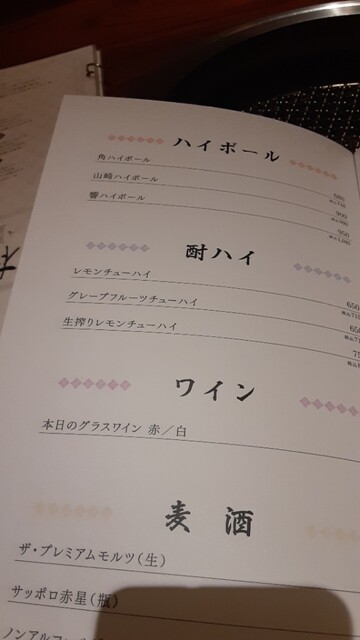 ハイボール
角ハイボール
山崎ハイボール 900
響ハイボール 950
酎ハイ
レモンチューハイ 650
グレープフルーツチューハイ
生搾りレモンチューハイ
ワイン
本日のグラスワイン 赤／白
麦酒
ザ・プレミアムモルツ（生）
サッポロ赤星（瓶）